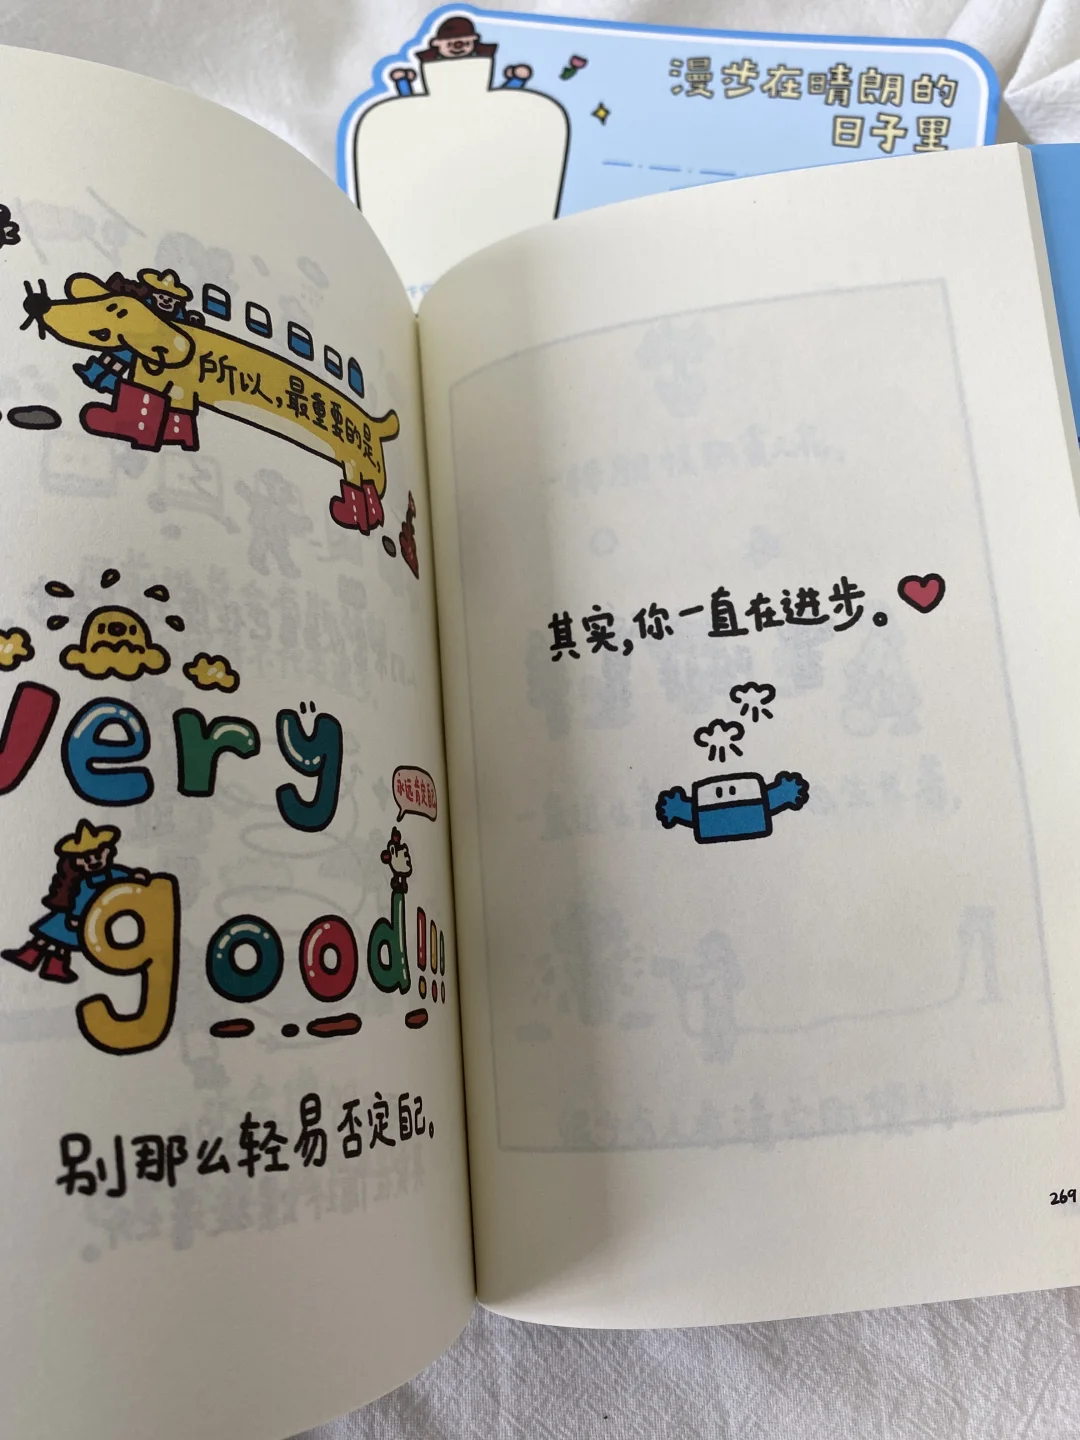 漫步在晴朗的
日子里
所以,最重要的是,
very
永远肯定自己
good!!!
别那么轻易否定自己。
其实,你一直在进步。
269